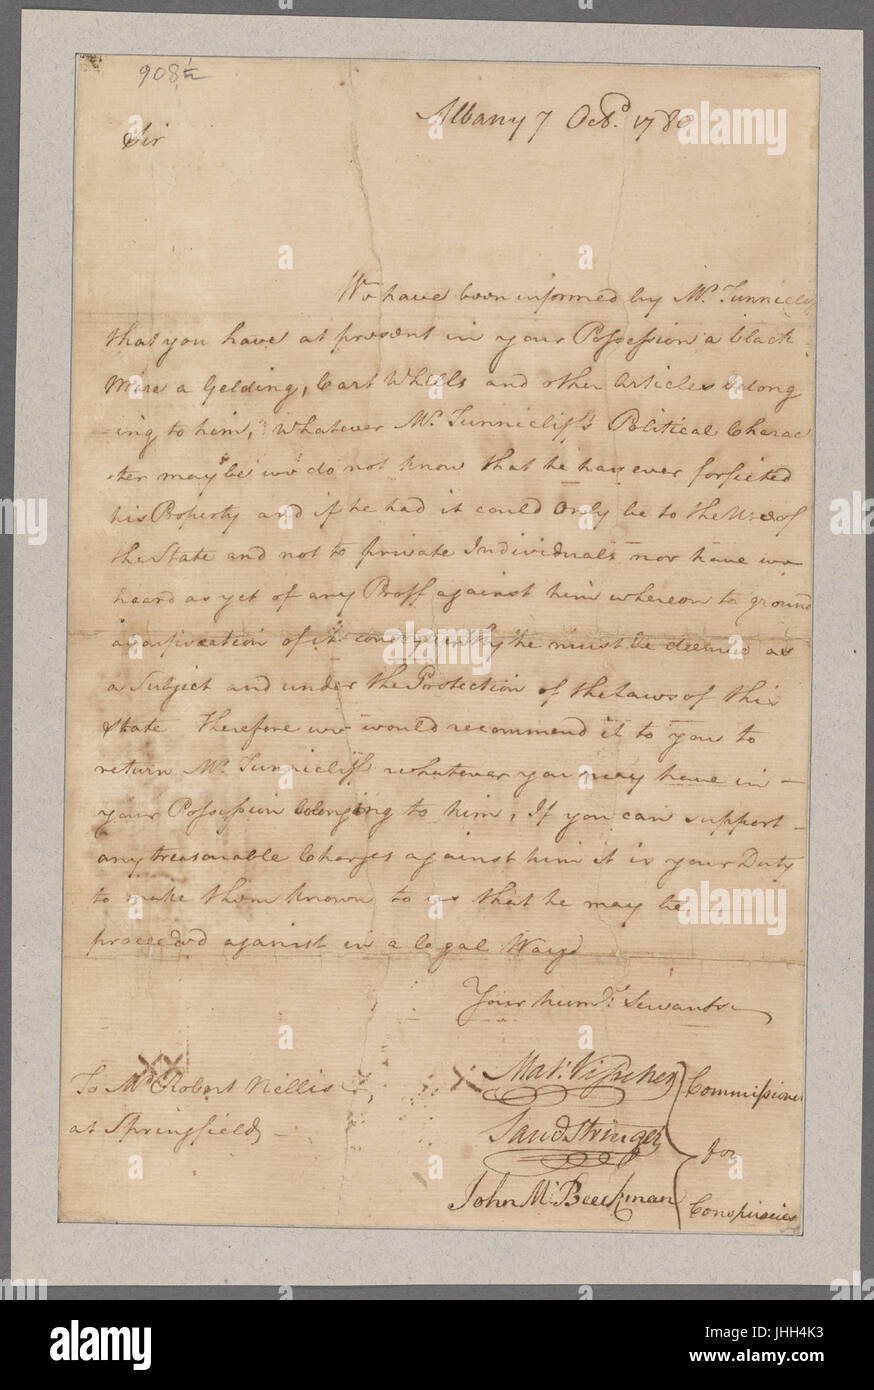 908½
Albany 7 Octbr. 1780
Sir
We have been informed by Mr. Tunnicliff
that you have at present in your Possession a black
Mare a Gelding, Cart Wheels and other Articles belong
-ing to him, Whatever Mr. Tunnicliff's Political Charac
-ter may be we do not know that he has ever forfieted
his Property and if he had it could only be to the Use of
the State and not to private Individuals nor have we
heard as yet of any Proff against him whereon to ground
of it consequently he must be deemed as
a Subject and under the Protection of the Laws of this
State Therefore we would recommend it to you to
return Mr. Tunnicliff whatever you may have in -
your Possession belonging to him, If you can support -
any treasonable Charges against him it is your Duty
to make them known to us that he may be
proceeded against in a legal Way
Your humb. Servants
To Mr. Robert Nellis
at Springfield
Mat: Visscher
Saml. Stringer
John M. Beeckman
Commissioners
for
Conspiracies
alamy
a
alamy
Image ID: JHH4K3
www.alamy.com